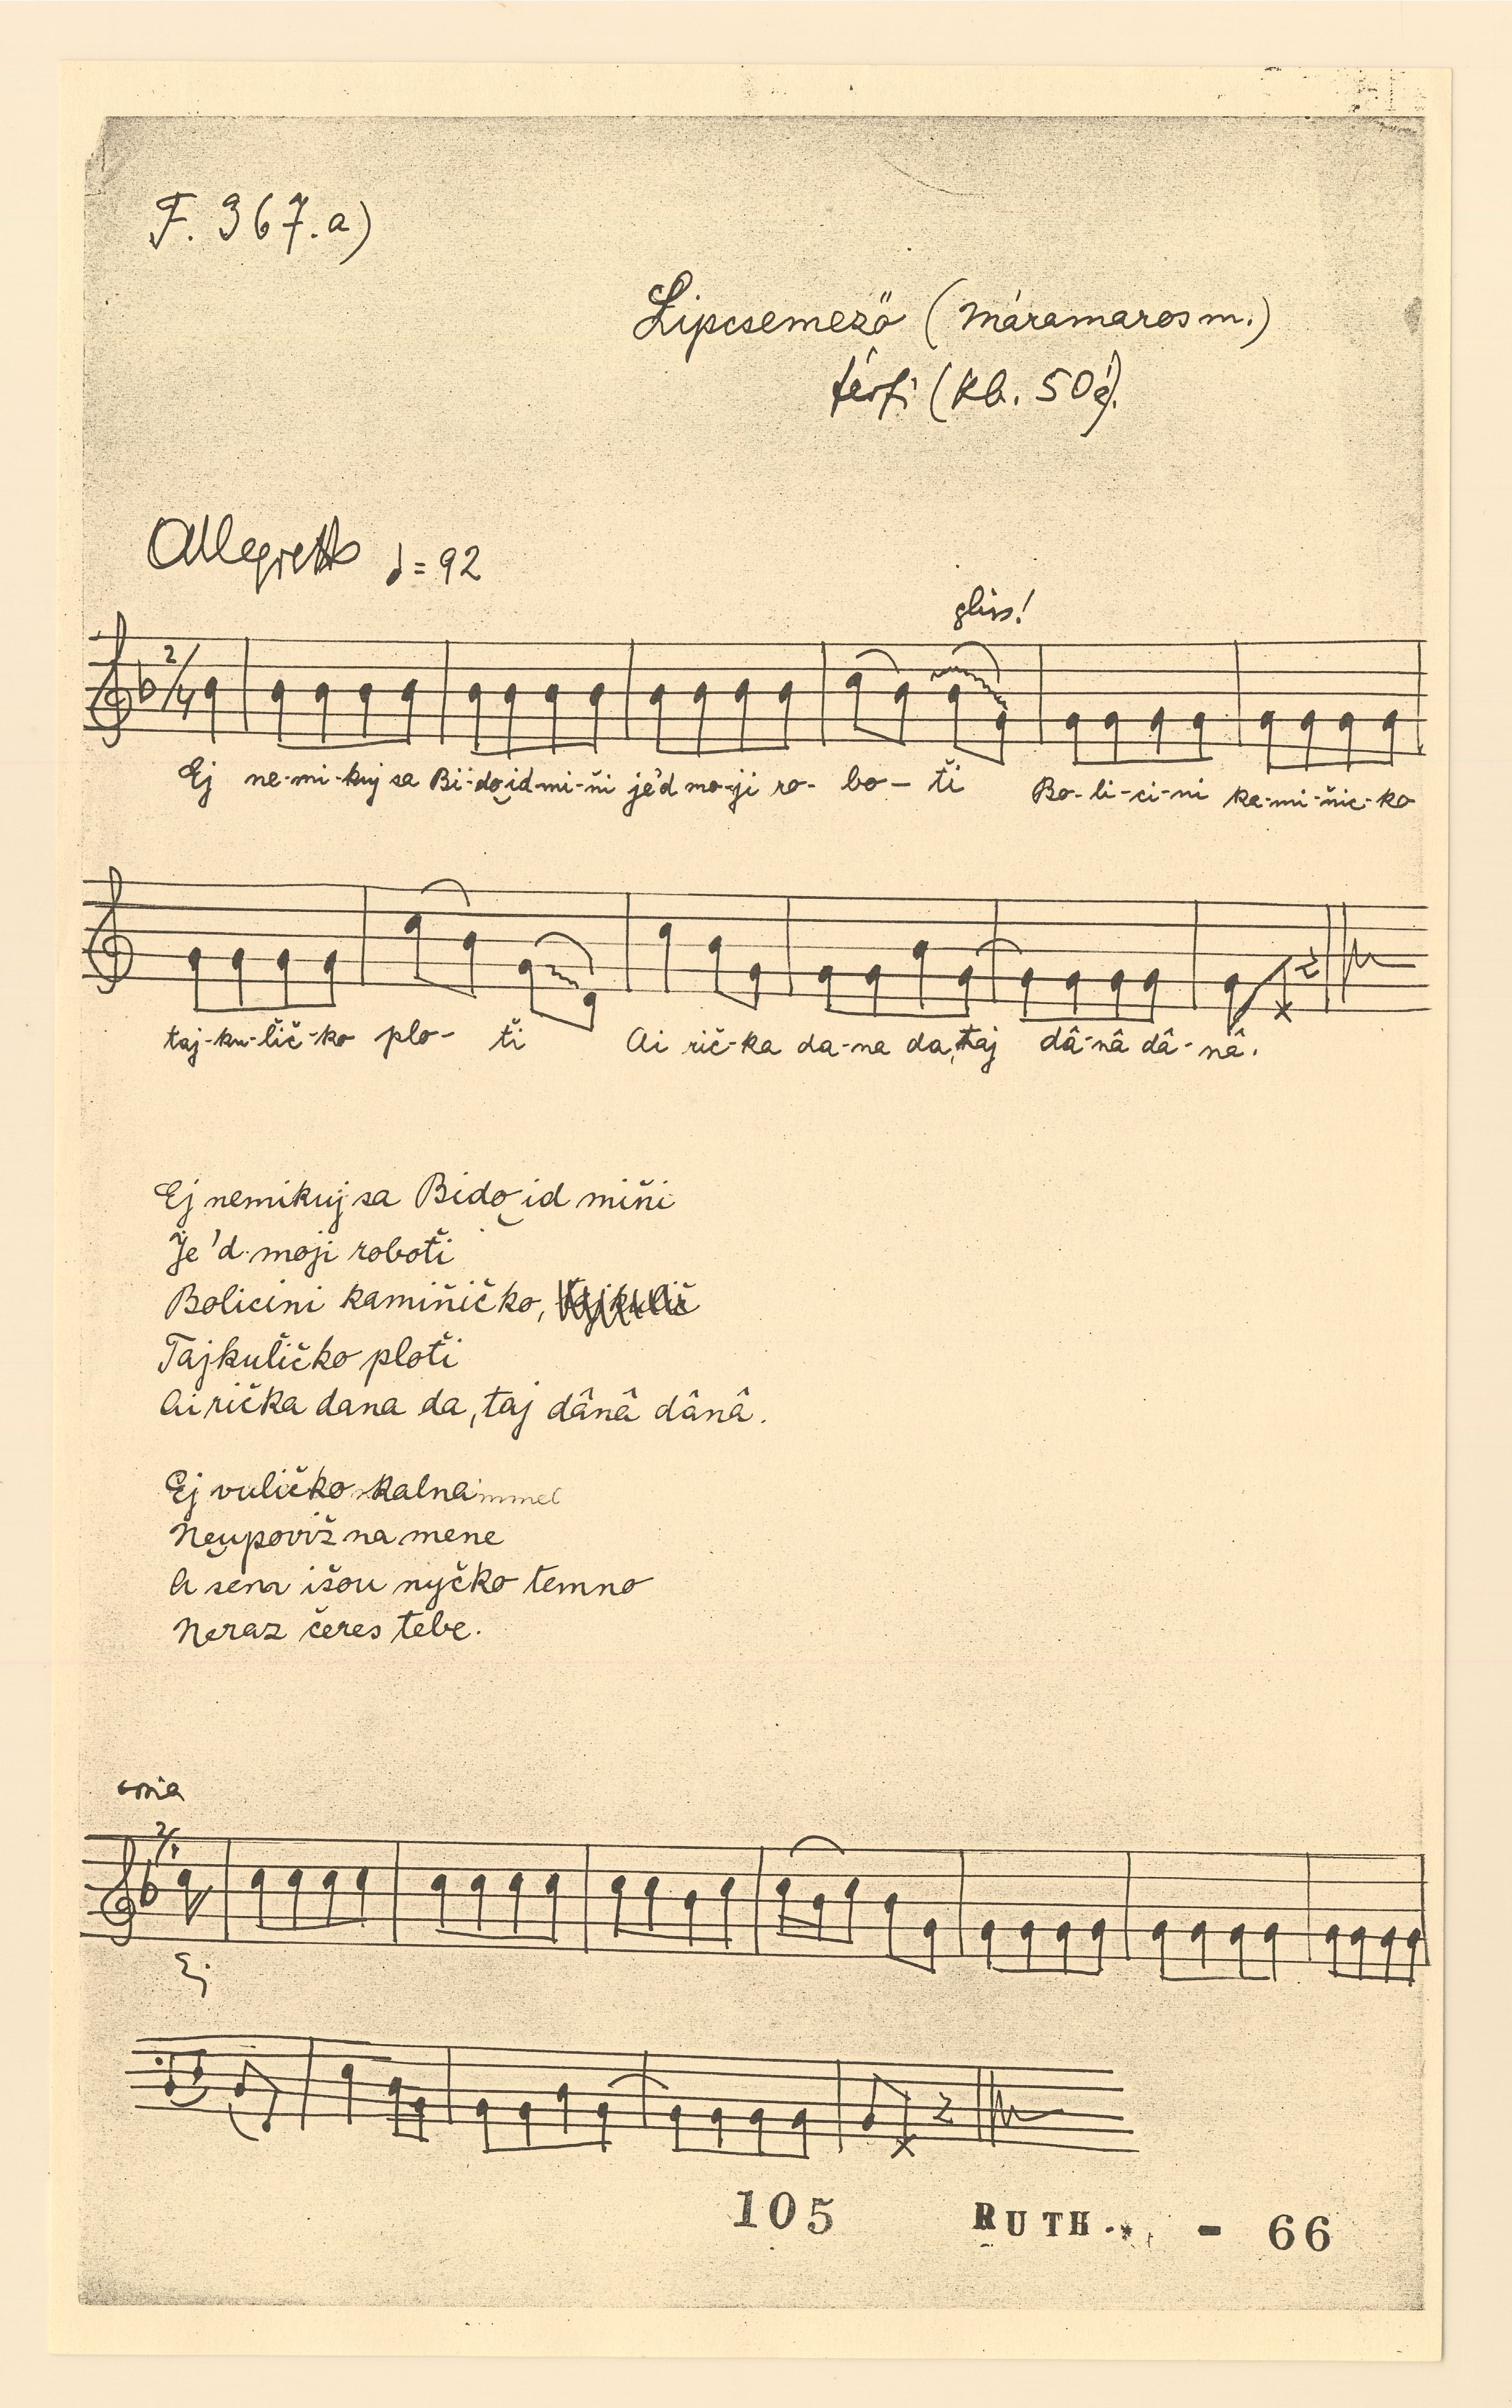 F. 367.a)
Lipcsemező (Máramaros m.)
férfi (kb. 50 é).
Allegretto ♩ = 92
gliss!
2/4
Ej ne-mi-kuj sa Bi-do id-mi-ňi je'd mo-ji ro- bo - ťi Bo-li-ci-ni ka-mi-ňič-ko
taj-ku-lič-ko plo- ťi Ai rič-ka da-na da, taj dâ-nâ dâ-nâ.
Ej nemikuj sa Bido id miňi
Je'd moji roboťi
Bolicini kamiňičko,
Tajkuličko ploťi
Ai rička dana da, taj dânâ dânâ.
Ej vuličko kalna
Neupoviž na mene
A sem išou nyčko temno
Neraz čeres tebe.
2/4
Ej
105 RUTH. - 66